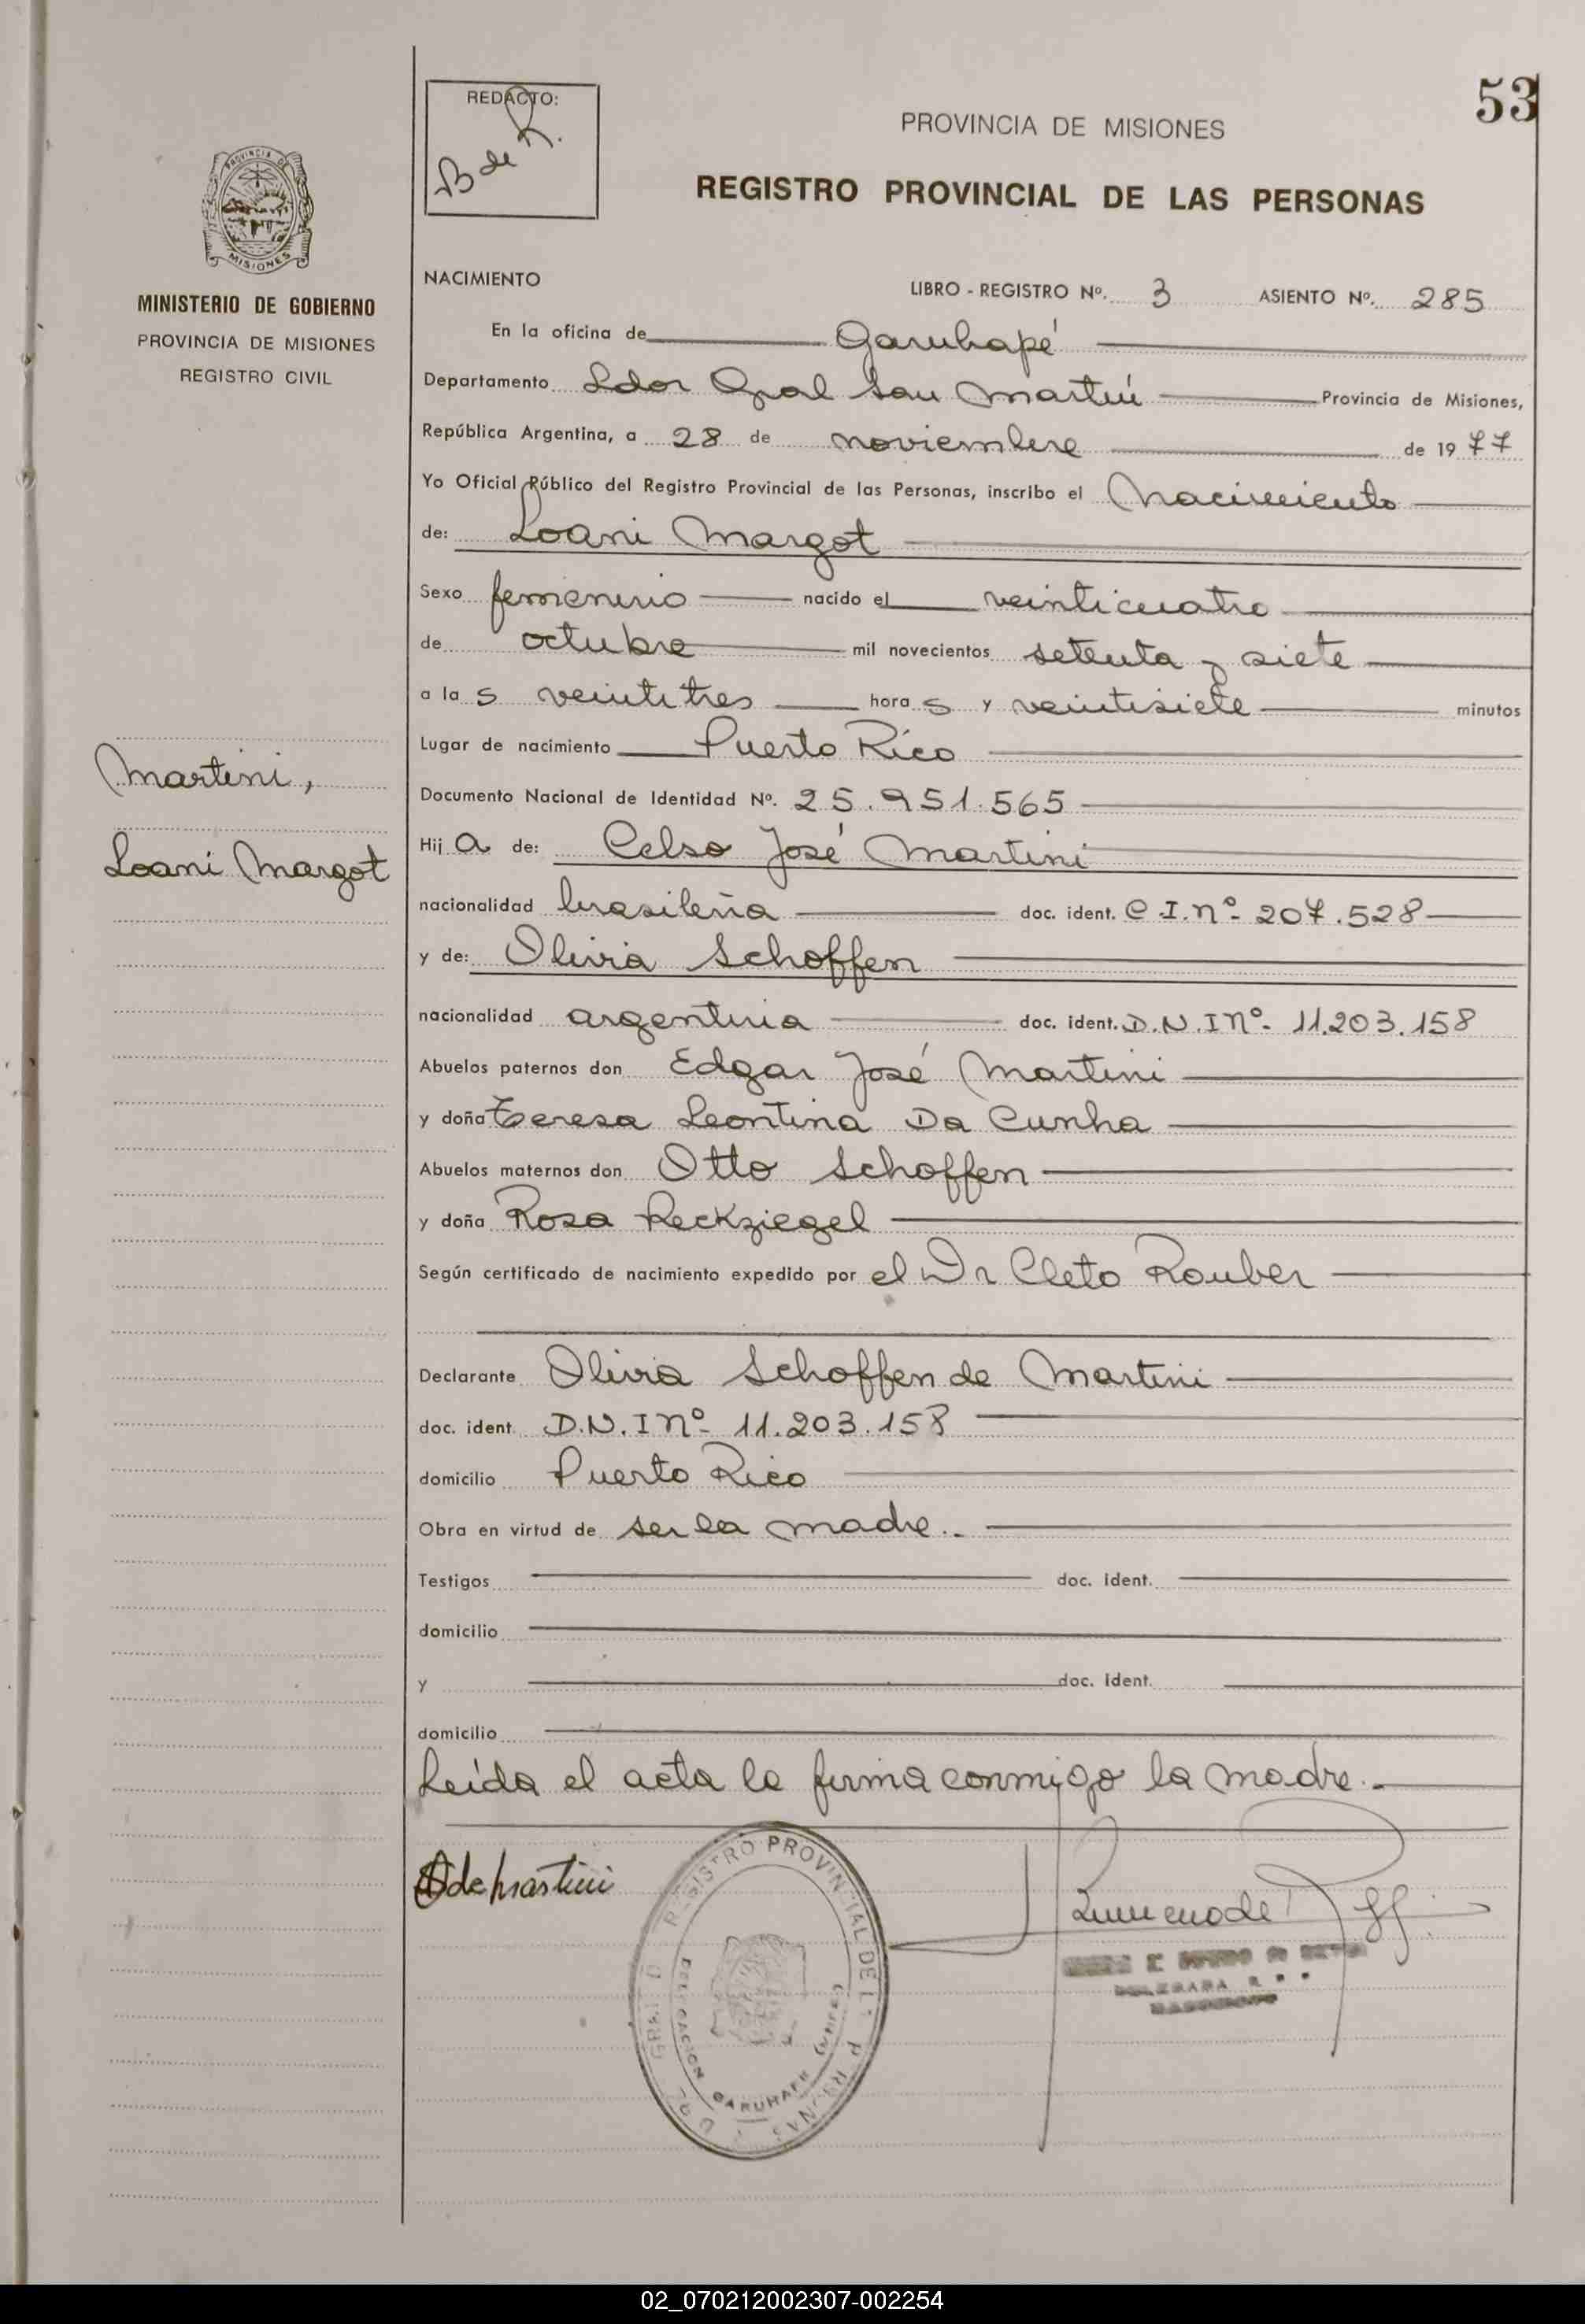 53
REDACTO:
B de R.
PROVINCIA DE MISIONES
REGISTRO PROVINCIAL DE LAS PERSONAS
PROVINCIA DE
MISIONES
MINISTERIO DE GOBIERNO
PROVINCIA DE MISIONES
REGISTRO CIVIL
Martini,
Loani Margot
NACIMIENTO LIBRO - REGISTRO Nº. 3 ASIENTO Nº. 285
En la oficina de Garuhapé
Departamento Ldor Gral San Martín Provincia de Misiones,
República Argentina, a 28 de noviembre de 1977
Yo Oficial Público del Registro Provincial de las Personas, inscribo el Nacimiento
de: Loani Margot
Sexo femenino nacido el veinticuatro
de octubre mil novecientos setenta y siete
a la s veintitres hora s y veintisiete minutos
Lugar de nacimiento Puerto Rico
Documento Nacional de Identidad Nº. 25.951.565
Hij a de: Celso José Martini
nacionalidad brasileña doc. ident. C.I.nº- 207.528
y de: Olivia Schoffen
nacionalidad argentina doc. ident. D.N.I nº- 11.203.158
Abuelos paternos don Edgar José Martini
y doña Teresa Leontina Da Cunha
Abuelos maternos don Otto Schoffen
y doña Rosa Reckziegel
Según certificado de nacimiento expedido por el Dr Cleto Rouber
Declarante Olivia Schoffen de Martini
doc. ident. D.N.I nº- 11.203.158
domicilio Puerto Rico
Obra en virtud de ser la madre.-
Testigos doc. ident.
domicilio
y doc. ident.
domicilio
Leída el acta la firma conmigo la madre.-
de Martini
REGISTRO PROVINCIAL DE
DELEGACION GARUHAPE
02_070212002307-002254